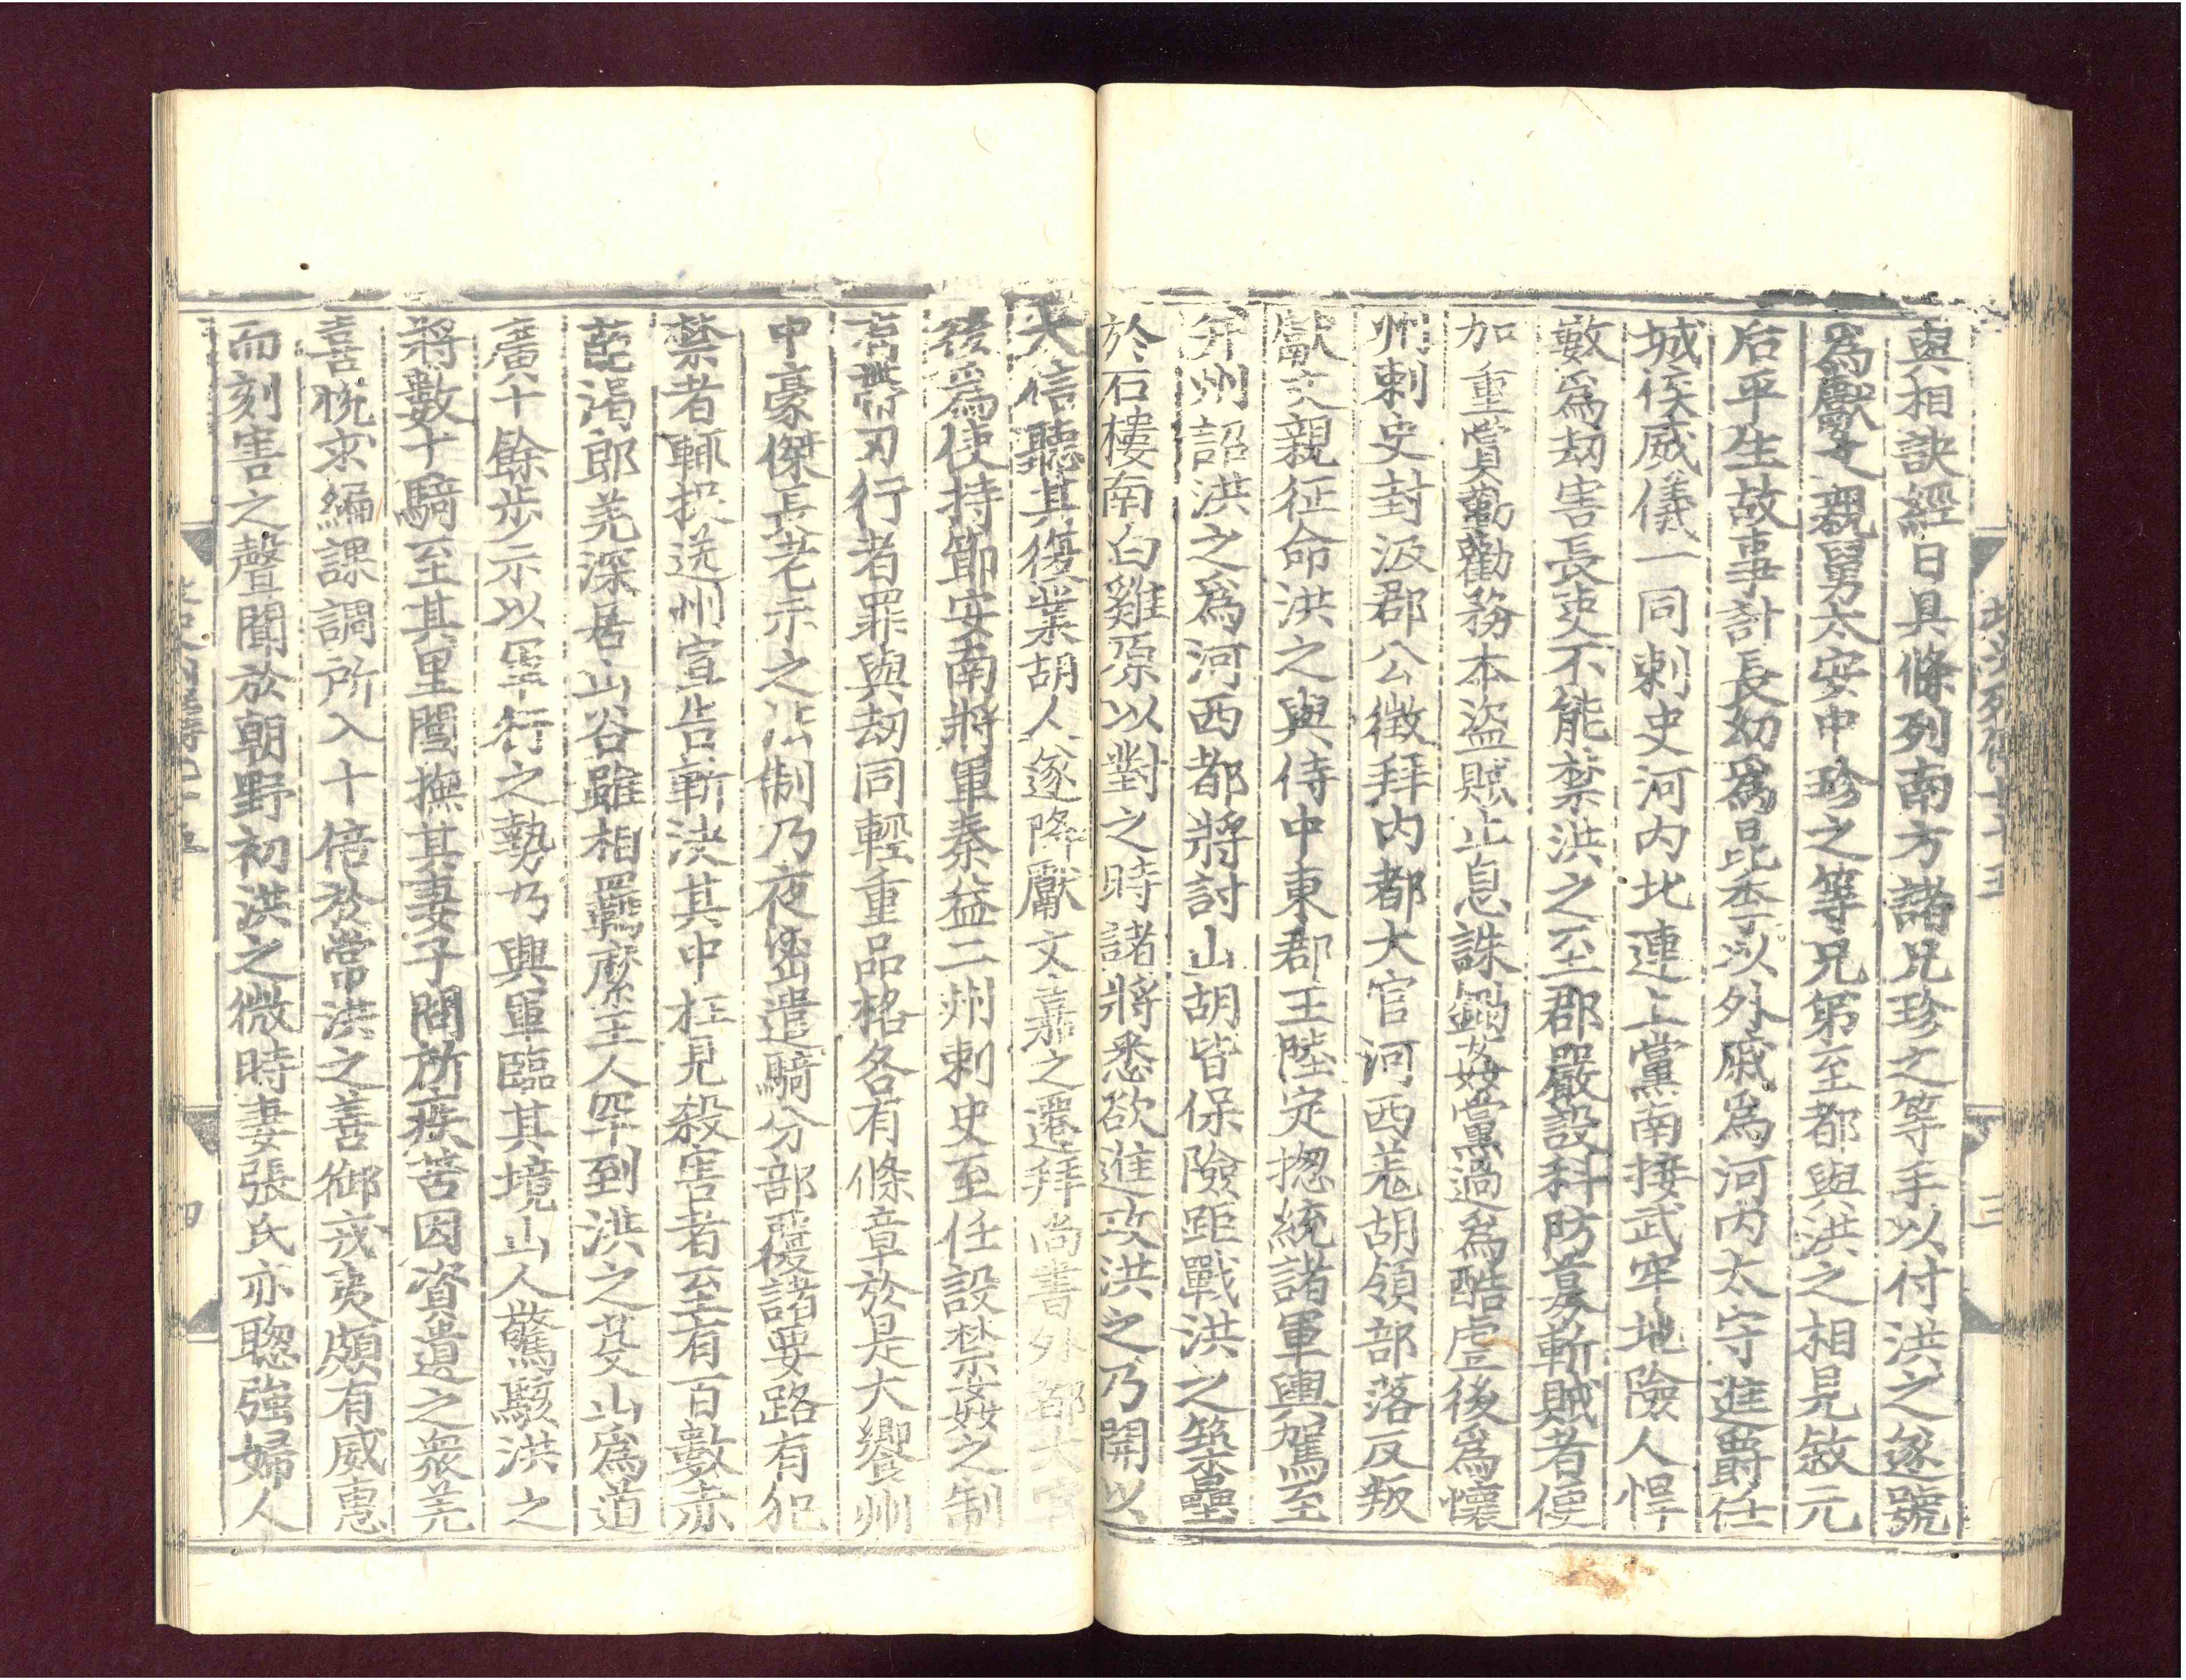 與相訣經日具條列南方諸兄珍之等手以付洪之遂號
爲獻文親舅太安中珍之等兄弟至都與洪之相見敘元
后平生故事計長幼爲昆季以外戚爲河內太守進爵任
城侯威儀一同刺史河內北連上黨南接武牢地險人悍
數爲劫害長吏不能禁洪之至郡嚴設科防募斬賊者便
加重賞勸務本盜賊止息誅鋤姦黨過爲酷虐後爲懷
州刺史封汲郡公徵拜內都大官河西羌胡領部落反叛
獻文親征命洪之與侍中東郡王陸定揔統諸軍輿駕至
并州詔洪之爲河西都將討山胡皆保險距戰洪之築壘
於石樓南白雞原以對之時諸將悉欲進攻洪之乃開以
大信聽其復業胡人遂降獻文嘉之遷拜尚書外都大官
後爲使持節安南將軍秦益二州刺史至任設禁姦之制
有帶刃行者罪與劫同輕重品格各有條章於是大饗州
中豪傑長老示之法制乃夜密遣騎分部覆諸要路有犯
禁者輒捉送州宣告斬決其中枉見殺害者至有百數赤
葩渴郎羌深居山谷雖相羈縻王人罕到洪之芟山爲道
廣十餘步示以軍行之勢乃興軍臨其境山人驚駭洪之
將數十騎至其里閭撫其妻子問所疾苦因資遺之衆羌
喜悅求編課調所入十倍於常洪之善御戎夷頗有威惠
而刻害之聲聞於朝野初洪之微時妻張氏亦聰強婦人